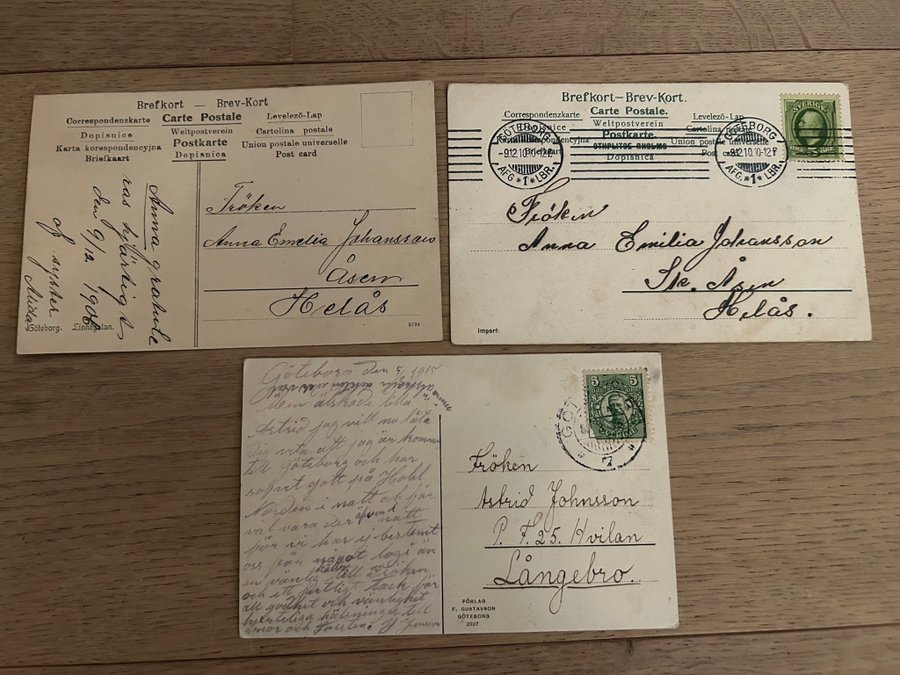 Brefkort — Brev-Kort
Correspondenzkarte Carte Postale Levelező-Lap
Dopisnice Weltpostverein Cartolina postale
Karta korrespondencyjna Postkarte Union postale universelle
Briefkaart Dopisnica Post card
Anna gratule
ras hjärtligt
den 9/12 1906
af syster
Göteborg. Linnégatan.
Fröken
Anna Emelia Johansson
Åsen
Helås
Brefkort—Brev-Kort.
Correspondenzkarte Carte Postale. Levelező-Lap
Dopisnice Weltpostverein Cartolina
Postkarte. Union postale universelle
Dopisnica
GÖTEBORG
-9.12.10.10-12.F
AFG *1* LBR.
GÖTEBORG
-9.12.10.10-12.F
AFG *1* LBR.
SVERIGE
Fröken
Anna Emilia Johansson
Stk. Åsen
Helås.
Import.
Göteborg den 5/ 1915
Min älskade lilla
Astrid jag vill nu låta
Dig veta att jag än kommen
till Göteborg och har
sovit gott på Hotel
Norden i natt och får
väl vara der även i natt
för vi har ej bestämt
oss för något logi än
en vänlig hälsn till Fröken
och ett hertligt tack för
all godhet och vänlighet
hjertliga hälsningar till
5 5
Fröken
Astrid Johnsson
P. F. 25. Hvilan
Långebro.
FÖRLAG
F. GUSTAVRON
GÖTEBORG
2027